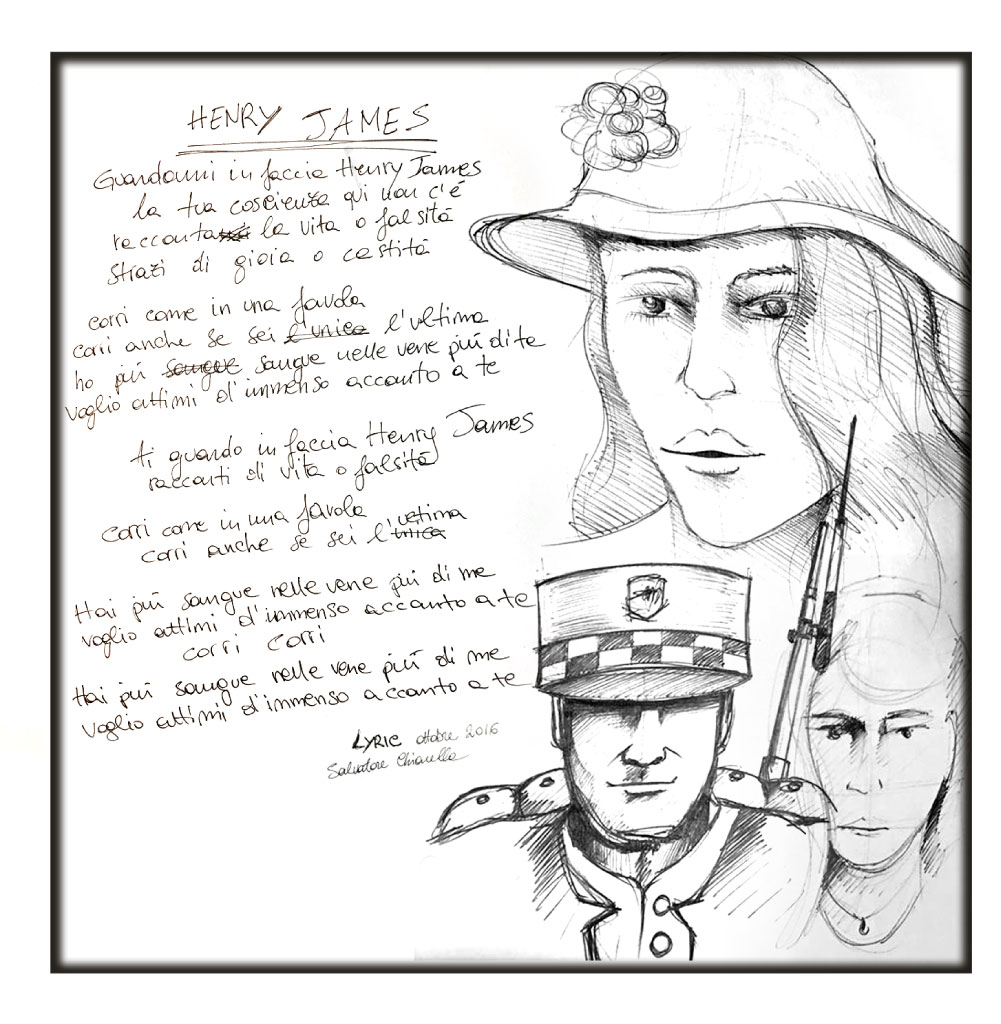 HENRY JAMES
Guardami in faccia Henry James
la tua coscienza qui non c'é
racconta la vita o falsitá
strazi di gioia o castitá
corri come in una favola
corri anche se sei l'unica l'ultima
ho piú sangue sangue nelle vene piú di te
voglio attimi d'immenso accanto a te
ti guardo in faccia Henry James
racconti di vita o falsitá
corri come in una favola
corri anche se sei l'unica ultima
Hai piú sangue nelle vene piú di me
voglio attimi d'immenso accanto a te
corri corri
Hai piú sangue nelle vene piú di me
voglio attimi d'immenso accanto a te
LYRIC ottobre 2016
Salvatore Chiarella